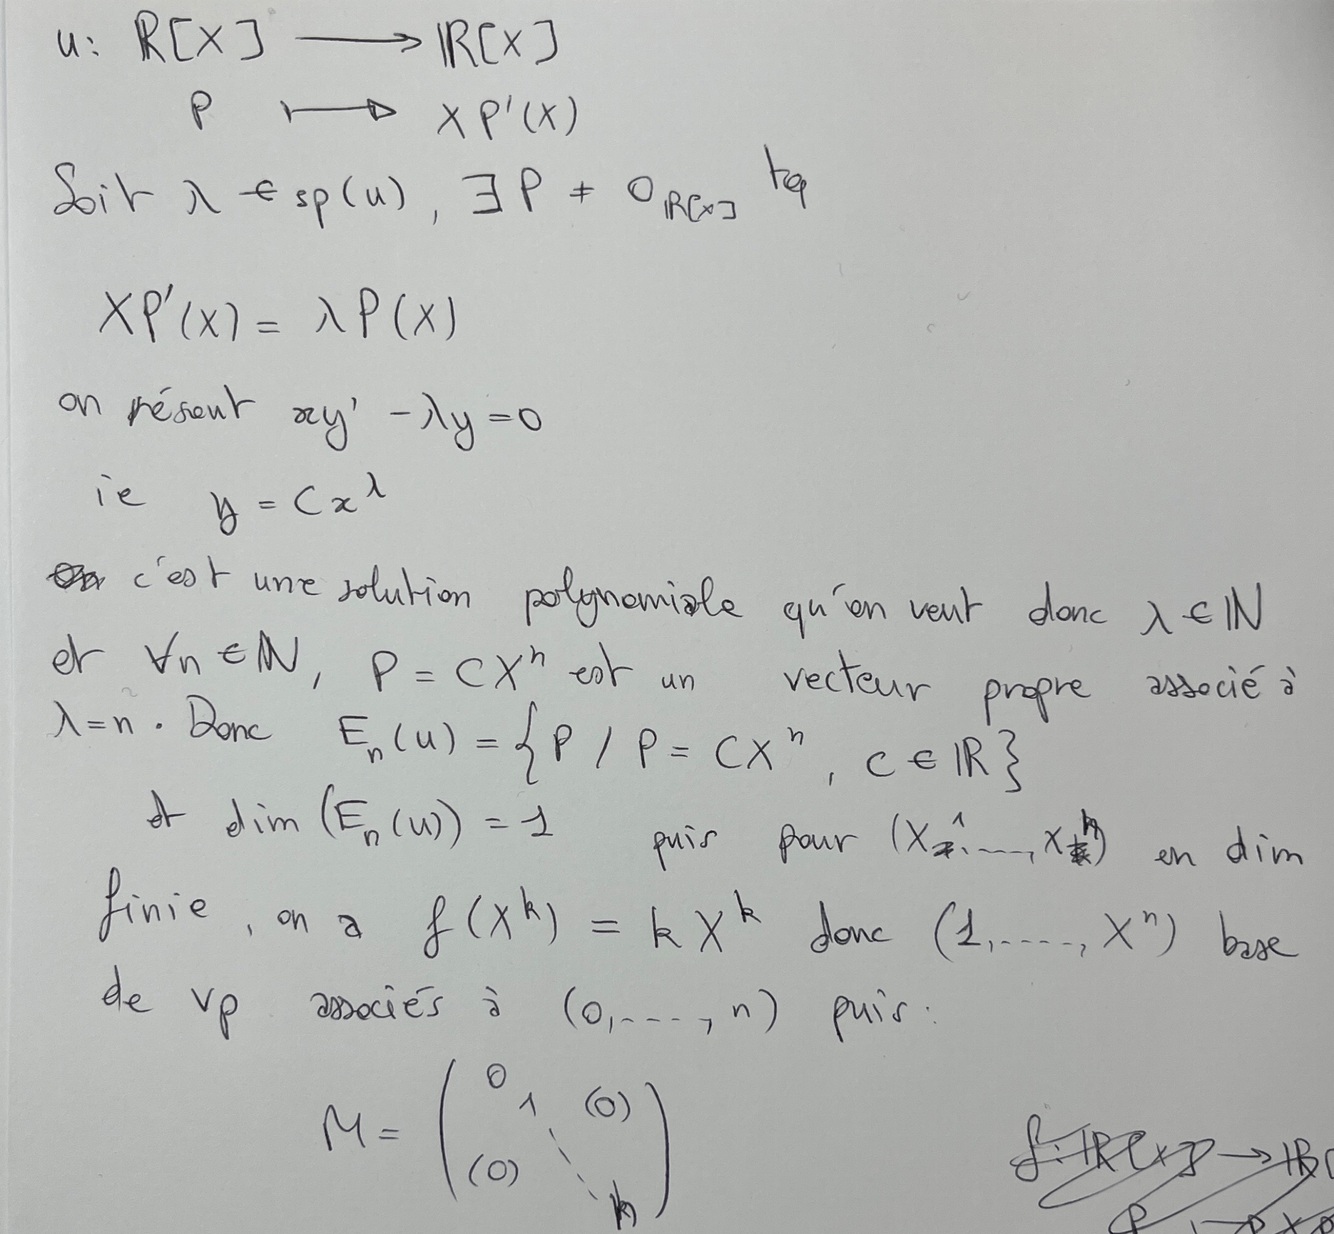 u: ℝ[X] ⟶ ℝ[X]
P ⟼ XP'(X)
Soit λ ∈ sp(u), ∃P ≠ 0_ℝ[X] tq
XP'(X) = λP(X)
on résout xy' - λy = 0
ie y = Cx^λ
c'est une solution polynomiale qu'on veut donc λ ∈ ℕ
et ∀n ∈ ℕ, P = CX^n est un vecteur propre associé à
λ = n. Donc E_n(u) = {P / P = CX^n, C ∈ ℝ}
et dim(E_n(u)) = 1 puis pour (X^1, ..., X^n) en dim
finie, on a f(X^k) = kX^k donc (1, ..., X^n) base
de vp associés à (0, ..., n) puis:
M = ( 0 1 (0) (0) ⋱ n )
f: ℝ[X] →
P